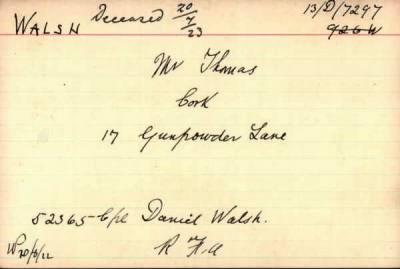 WALSH Deceased 20/7/23 13/D/7297
926W
Mr Thomas
Cork
17 Gunpowder Lane
52365 - Cpl Daniel Walsh.
R F A